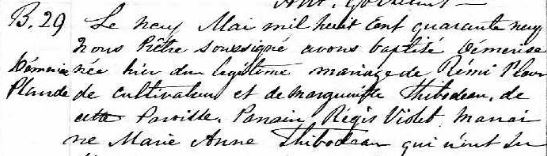 B. 29 Le neuf Mai mil huit cent quarante neuf
Nous Prêtre soussigné avons baptisé Démerise
Démerise née hier du légitime mariage de Rémi Plour
Plourde de cultivateur et de Marguerite Thibodeau, de
cette Paroisse. Parrain, Régis Violet, Marrai
ne Marie Anne Thibodeau qui n'ont su